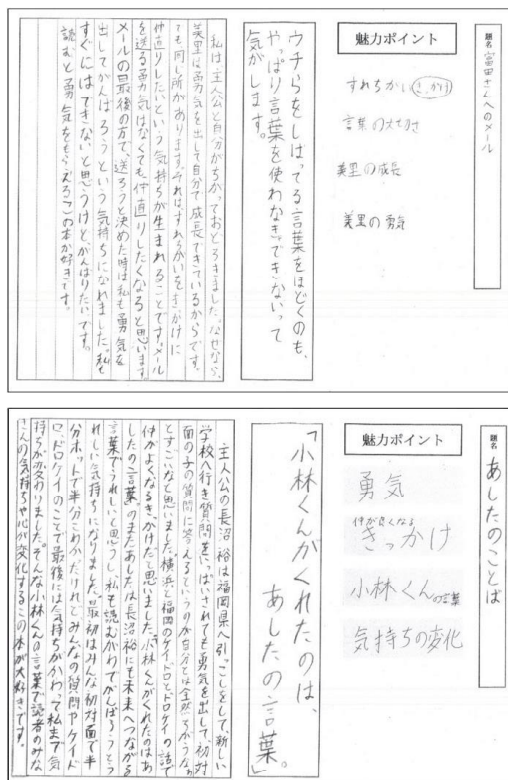 題名 富田さんへのメール
魅力ポイント
すれちがい きっかけ
言葉の大切さ
美里の成長
美里の勇気
ウチらをしばってる言葉をほどくのも、
やっぱり言葉を使わなきゃできないって
気がします。
私は主人公と自分がちがっておどろきました。なぜなら、
美里は勇気を出して自分で成長できているからです。
でも同じ所があります。それはすれちがいをきっかけに
仲直りしたいという気持ちが生まれることです。メール
を送る勇気はなくても仲直りしたくなると思います。
メールの最後の方で、送ろうと決めた時は私も勇気を
出してがんばろうという気持ちになれました。私も
すぐにはできないと思うけどがんばりたいです。
読むと勇気をもらえるこの本が好きです。
題名 あしたのことば
魅力ポイント
勇気
仲が良くなる
きっかけ
小林くんの言葉
気持ちの変化
「小林くんがくれたのは、
あしたの言葉。」
主人公の長沼裕は福岡県へ引っこしをして、新しい
学校へ行き質問をいっぱいされても勇気を出して、初対
面の子の質問に答えるというのが自分とは全然ちがうなぁ
とすごいなと思いました。横浜と福岡のケイドロとドロケイの話で
仲がよくなるきっかけだと思いました。「小林くんがくれたのはあ
したの言葉」のまたあしたは長沼裕にも未来へつながる
言葉でうれしいと思うし、私も読むがわでがんばろうとう
れしい気持ちになりました。最初はみんな初対面で半
分ホットで半分こわかだけれどみんなの質問やケイド
ロ、ドロケイのことで最後には気持ちがかわって私まで気
持ちが変わりました。そんな小林くんの言葉で読者のみな
さんの気持ちや心が変化するこの本が大好きです。